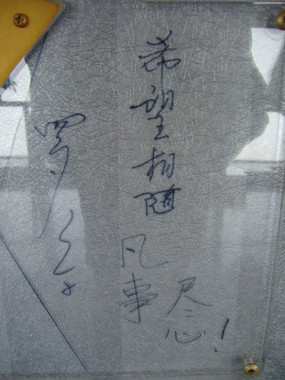 希望相随
凡事
尽心！